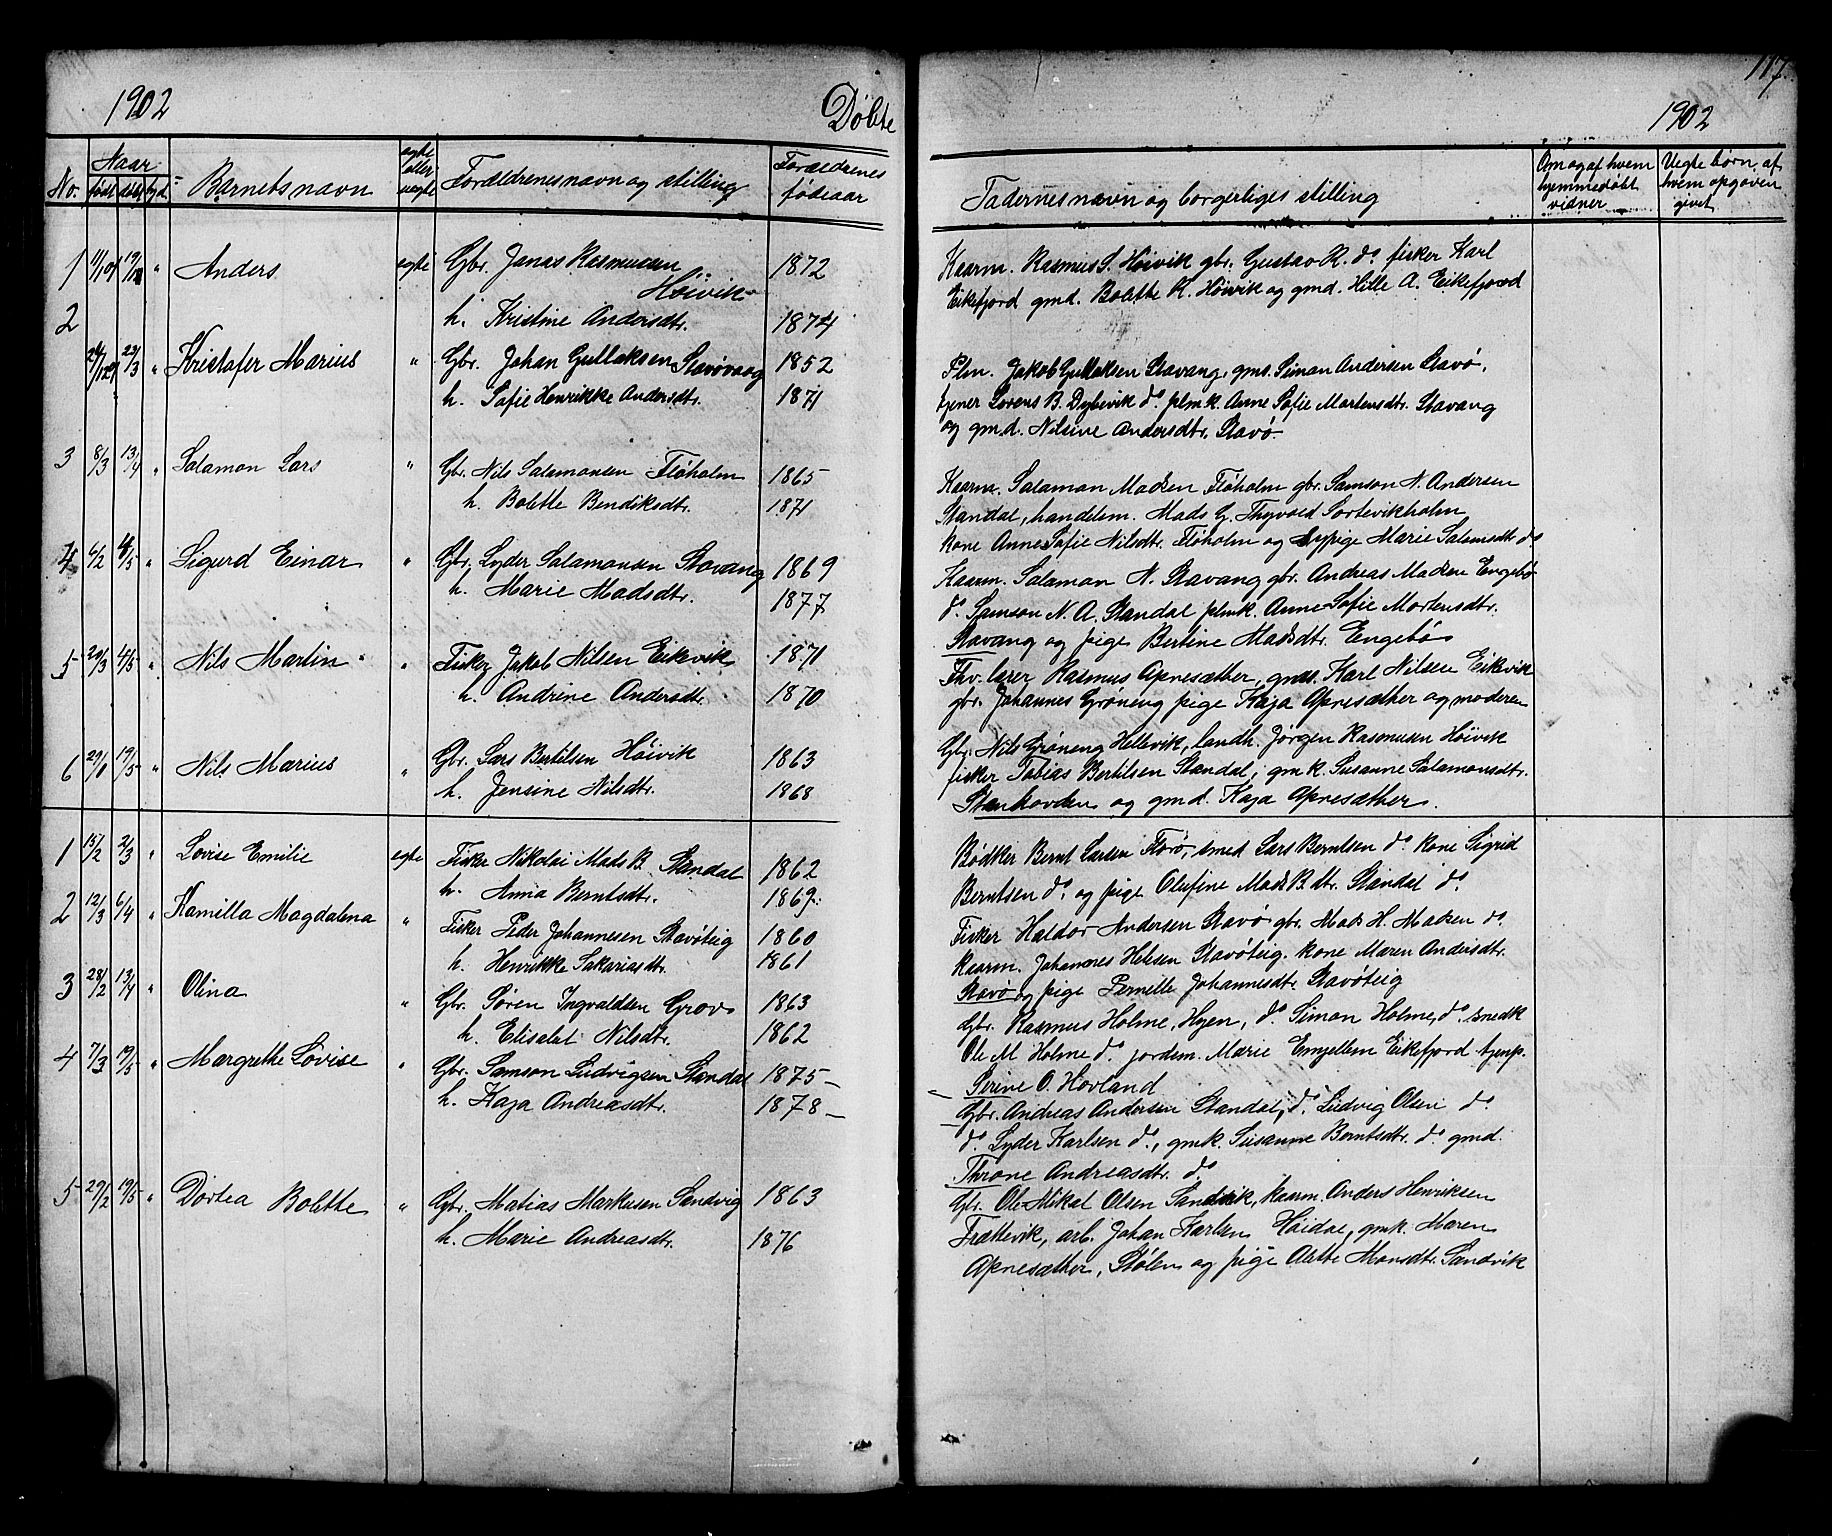 1902
Døbte
No.
Naar
født
døbt
Barnets navn
egte
eller
uegte
Forældrenes navn og stilling
Forældrenes
fødeaar
1 19/1 " Anders egte Gbr. Jonas Rasmussen 1872
Höivik
2
h. Kristine Andersdtr. 1874
Kristofer Marius " Gbr. Johan Gullaksen Stavøvaag 1852
h. Sofie Henrikke Andersdtr. 1871
3 8/3 13/4 " Salamon Lars " Gbr. Nils Salamonsen Fløholm 1865
h. Bolette Bendiksdtr. 1871
4 6/2 4/5 " Sigurd Einar " Gbr. Lyder Salamonsen Stavang 1869
h. Marie Madsdtr. 1877
5 20/3 4/5 " Nils Martin " Fisker Jakob Nilsen Eikevik 1871
h. Andrine Andersdtr. 1870
6 19/5 " Nils Marius " Gbr. Lars Bertilsen Höivik 1863
h. Jensine Nilsdtr. 1868
1 15/2 2/3 " Lovise Emilie egte Fisker Nikolai Mads B. Standal 1862
h. Anna Berntsdtr. 1869
2 12/3 6/4 " Kamilla Magdalena " Fisker Peder Johannesen Stavøteig 1860
h. Henrikke Sakariasdtr. 1861
3 28/2 13/4 " Olina " Gbr. Søren Ingvaldsen Grov 1863
h. Elisabet Nilsdtr. 1862
4 7/3 19/5 " Margrethe Lovise " Gbr. Samson Ludvigsen Standal 1875
h. Kaja Andreasdtr. 1878
5 27/2 19/5 " Dortea Bolette " Gbr. Matias Markusen Sandvig 1863
h. Marie Andreasdtr. 1876
117.
1902
Fadernes navn og borgerliges stilling
Om og af hvem
hjemmedøbt
vidner
Uegte børn, af
hvem opgaven
givet
Kaarm. Rasmus S. Höivik gbr. Gustav R. do fisker Karl
Eikefjord gmd. Bolette R. Höivik og gmd. Hille A. Eikefjord
Plm. Jakob Gullaksen Stavang, gms. Simon Andersen Stavø,
tjener Lorens B. Dybevik do plmk. Anne Sofie Martensdtr. Stavang
og gmd. Nilsine Andersdtr. Stavø.
Kaarm. Salamon Madsen Fløholm gbr. Samson N. Andersen
Standal, handelsm. Mads G. Thyvold Sortevikholm
kone Anne Sofie Nilsdtr. Fløholm og pige Marie Salamsdtr. do
Kaarm. Salamon N. Stavang gbr. Andreas Madsen Engebö
do Samson N. A. Standal plmk. Anne Sofie Mortensdtr.
Stavang og pige Bertine Madsdtr. Engebö
Fhv. lærer Rasmus Apnesæther, gms. Karl Nilsen Eikevik
gbr. Johannes Grøneng pige Kaja Apnesæther og moderen
Gbr. Nils Grøneng Hellevik, landh. Jørgen Rasmusen Höivik
fisker Tobias Bertilsen Standal, gmk. Susanne Salamonsdtr.
og gmd. Kaja Apnesæther.
Bødker Bernt Larsen Florø, smed Lars Berntsen do kone Sigrid
Berntsen do og pige Olufine Mads B.dtr. Standal do
Fisker Haldor Andersen Stavø gbr. Mads H. Madsen do
Kaarm. Johannes Helesen Stavøteig kone Maren Andersdtr.
Stavø og pige Pernille Johannesdtr. Stavøteig
Gbr. Rasmus Holme, Hyen, do Simon Holme, do snedk
Ole M Holme do jordem. Marie Emjellem Eikefjord tjenp.
Serine O. Hovland
Gbr. Andreas Andersen Standal, do Ludvig Olsen do
do Lyder Karlsen do, gmk. Susanne Berntsdtr. do gmd.
Throne Andreasdtr. do
Gbr. Ole Mikal Olsen Sandvik, kaarm. Anders Henriksen
Frættevik, arb. Johan Karlsen Höidal, gmk. Maren
Apnesæther, Stølen og pige Alette Monsdtr. Sandvik